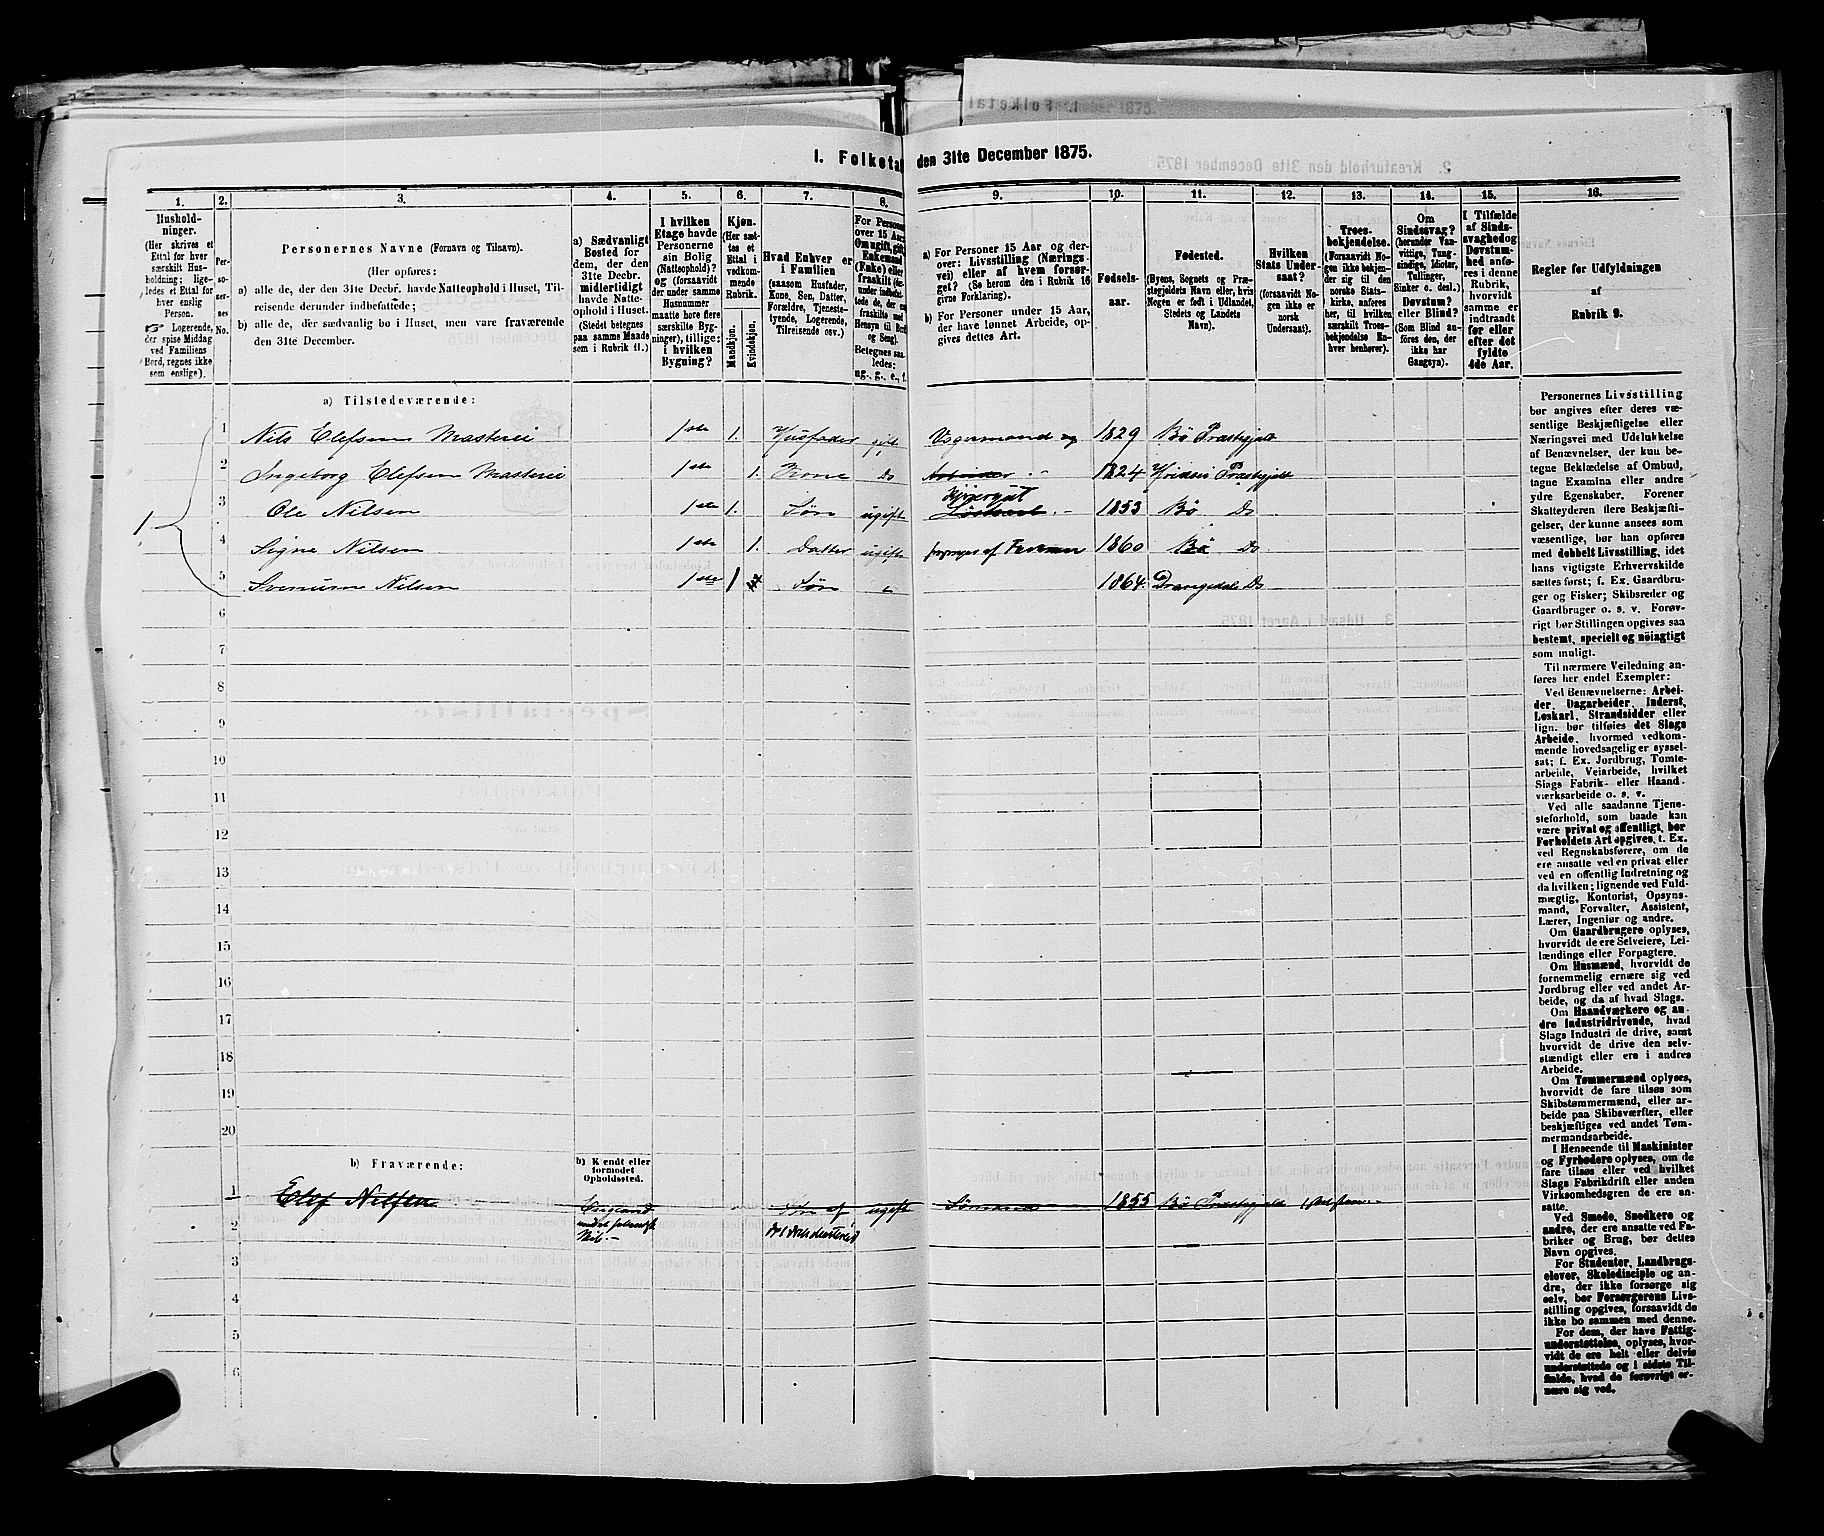 1. Folketal den 31te December 1875.
1.
2.
3.
4.
5.
6.
7.
8.
9.
10.
11.
12.
13.
14.
15.
16.
Hushold-
ninger.
(Her skrives et
Ettal for hver
særskilt Hus-
holdning; lige-
ledes et Ettal for
hver enslig
Person.
☞ Logerende,
der spise Middag
ved Familiens
Bord, regnes ikke
som enslige).
Per-
so-
ner-
nes
No.
Personernes Navne (Fornavn og Tilnavn).
(Her opføres:
a) alle de, der den 31te Decbr. havde Natteophold i Huset, Til-
reisende derunder indbefattede;
b) alle de, der sædvanlig bo i Huset, men vare fraværende
den 31te December.
a) Sædvanligt
Bosted for
dem, der den
31te Decbr.
midlertidigt
havde Natte-
ophold i Huset.
(Stedet betegnes
paa samme Maade
som i Rubrik 11.)
I hvilken
Etage havde
Personerne
sin Bolig
(Natteophold)?
(forsaavidt
der under samme
Husnummer
maatte høre flere
særskilte Byg-
ninger), tillige:
i hvilken
Bygning?
Kjøn.
(Her sæt-
tes et
Ettal i
vedkom-
mende
Rubrik.
Mandkjøn.
Kvindekjøn.
Hvad Enhver er
i Familien
(saasom Husfader,
Kone, Søn, Datter,
Forældre, Tjeneste-
tyende, Logerende,
Tilreisende osv.)
For Personer
over 15 Aar:
Om ugift, gift,
Enkemand
(Enke) eller
fraskilt
Betegnes saa-
ledes:
ug., g., e., f.
a) For Personer 15 Aar og der-
over: Livsstilling (Nærings-
vei) eller af hvem forsør-
get? (Se herom den i Rubrik 16
givne Forklaring).
b) For Personer under 15 Aar,
der have lønnet Arbeide, op-
gives dettes Art.
Fødsels-
aar.
Fødested.
(Byens, Sognets og Præ-
stegjeldets Navn eller, hvis
Nogen er født i Udlandet,
Stedets og Landets
Navn).
Hvilken
Stats Under-
saat?
(forsaavidt No-
gen ikke er
norsk
Undersaat).
Troes-
bekjendelse.
(Forsaavidt No-
gen ikke bekjen-
der sig til den
norske Stats-
kirke, anføres
her, til hvilken
særskilt Troes-
bekjendelse En-
hver henhører).
Om
Sindssvag?
(herunder Van-
vittige, Tung-
sindige, Idioter,
Tullinger,
Sinker o. desl.)
Døvstum?
eller Blind?
(Som Blind an-
føres den, der
ikke har
Gangsyn).
I Tilfælde
af Sinds-
svaghed og
Døvstum-
hed anfø-
res i denne
Rubrik,
hvorvidt
samme er
indtraadt
før eller
efter det
fyldte
4de Aar.
Regler for Udfyldningen
af
Rubrik 9.
a) Tilstedeværende:
1 Nils Elefsen Masterei 1ste 1. Husfader gift 1829 Bö Præstegjeld
2 Ingeborg Elefsen Masterei 1ste 1. Kone Do Arbeider 1824 Hvidesei Præstegjeld
3 Ole Nilsen 1ste 1. Søn ugift Løskarl 1853 Bø Do
4 Signe Nilsen 1ste 1. Datter ugift forsørges af Faderen 1860 Bø Do
5 Nilsen 1ste 1 Søn 1864 Drangedal Do
1
6
7
8
9
10
11
12
13
14
15
16
17
18
19
20
b) Fraværende:
b) Kjendt eller
formodet
Opholdssted.
1 Elef Nilsen England Søn af ugift Sømand 1855 Bø Præstegjeld
2
3
4
5
6
Personernes Livsstilling
bør angives efter deres væ-
sentlige Beskjæftigelse eller
Næringsvei med Udelukkelse
af Benævnelser, der kun be-
tegne Beklædelse af Ombud,
tagne Examina eller andre
ydre Egenskaber. Forener
Skatteyderen flere Beskjæfti-
gelser, der kunne ansees som
væsentlige, bør han opføres
med dobbelt Livsstilling, idet
hans vigtigste Erhvervskilde
sættes først; f. Ex. Gaardbru-
ger og Fisker; Skibsreder og
Gaardbruger o. s. v. Forøv-
rigt bør Stillingen opgives saa
bestemt, specielt og nøiagtigt
som muligt.
Til nærmere Veiledning an-
føres her endel Exempler:
Ved Benævnelserne: Arbei-
der, Dagarbeider, Inderst,
Løskarl, Strandsidder eller
lign. bør tilføies det Slags
Arbeide, hvormed vedkom-
mende hovedsagelig er syssel-
sat; f. Ex. Jordbrug, Tomte-
arbeide, Veiarbeide, hvilket
Slags Fabrik- eller Haand-
værksarbeide o. s. v.
Ved alle saadanne Tjene-
steforhold, som baade kan
være privat og offentligt, bør
Forholdets Art opgives, t. Ex.
ved Regnskabsførere, om de
ere ansatte ved en privat eller
ved en offentlig Indretning og
da hvilken; lignende ved Fuld-
mægtig, Kontorist, Opsyns-
mand, Forvalter, Assistent,
Lærer, Ingeniør og andre.
Om Gaardbrugere oplyses,
hvorvidt de ere Selveiere, Lei-
lændinge eller Forpagtere.
Om Husmænd, hvorvidt de
fornemmelig ernære sig ved
Jordbrug eller ved andet Ar-
beide, og da af hvad Slags.
Om Haandværkere og an-
dre Industridrivende, hvad
Slags Industri de drive, samt
hvorvidt de drive den selv-
stændigt eller ere i andres
Arbeide.
Om Tømmermænd oplyses,
hvorvidt de fare tilsøs som
Skibstømmermænd, eller ar-
beide paa Skibsværfter, eller
beskjæftiges ved andet Tøm-
mermandsarbeide.
I Henseende til Maskinister
og Fyrbødere oplyses, om de
fare tilsøs eller ved hvilket
Slags Fabrikdrift eller anden
Virksomhedsgren de ere an-
satte.
Ved Smede, Snedkere og
andre, der ere ansatte ved Fa-
briker og Brug, bør dettes
Navn opgives.
For Studenter, Landbrugs-
elever, Skoledisciple og an-
dre, der ikke forsørge sig
selv, bør Forsørgerens Livs-
stilling opgives, forsaavidt de
ikke bo sammen med denne.
For dem, der have Fattig-
understøttelse, oplyses, hvor-
vidt de ere helt eller delvis
understøttede og i sidste Til-
fælde, hvad de forøvrigt er-
nære sig ved.